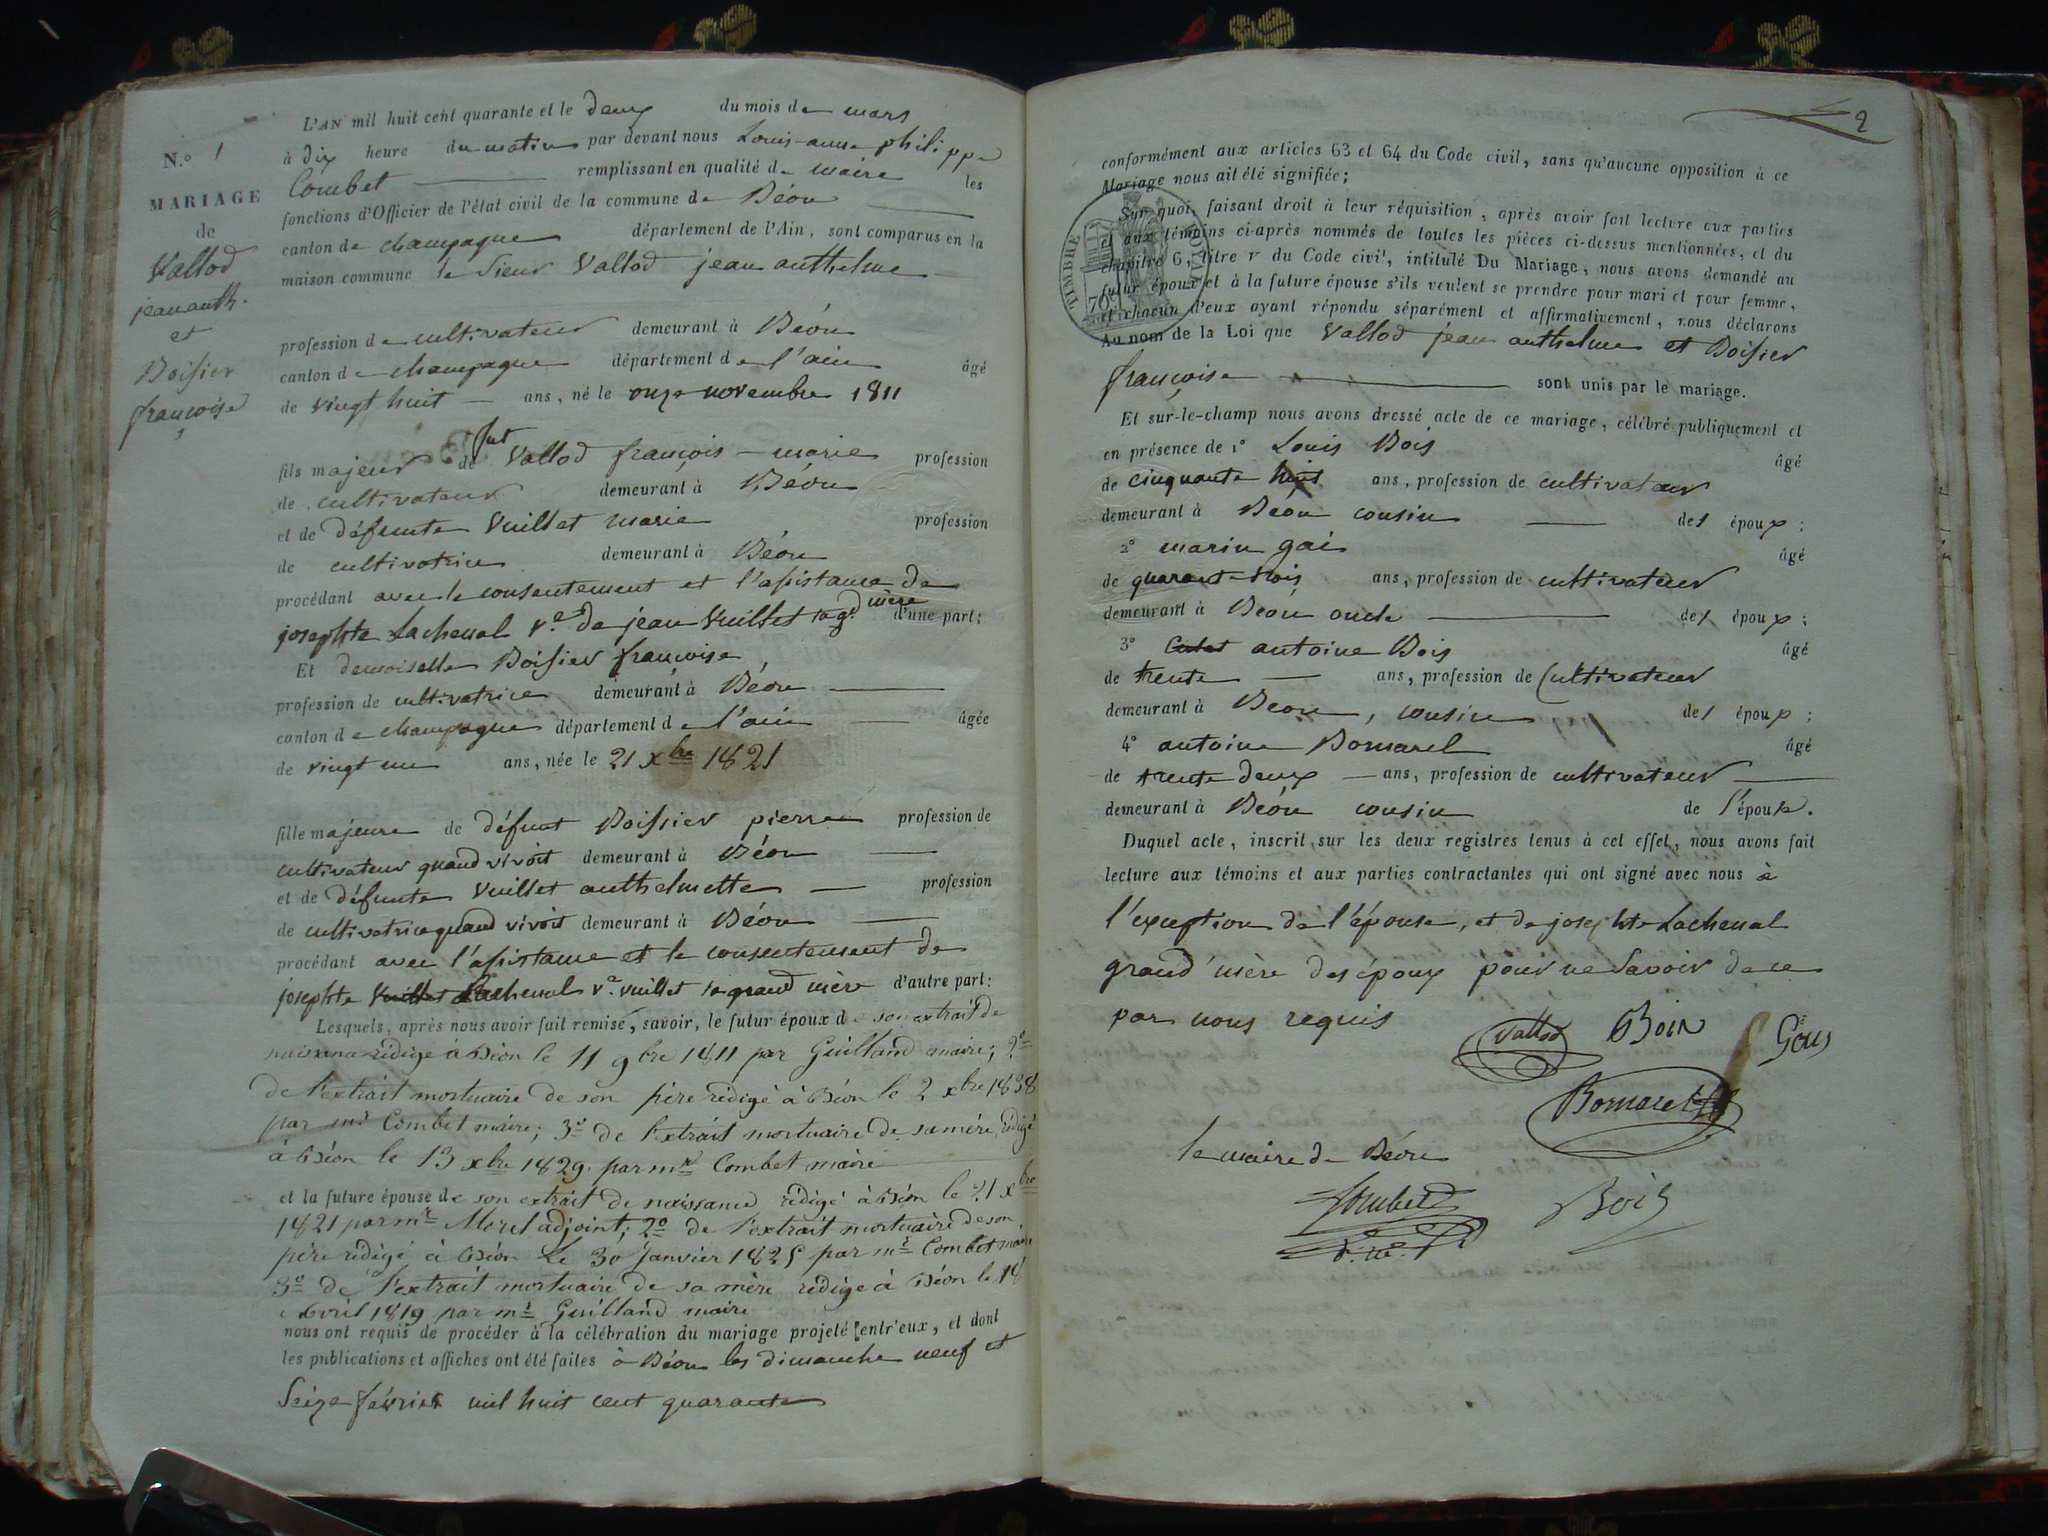 N.o 1
MARIAGE
de
Vallod
jean anth.
et
Boissier
françoise
L'AN mil huit cent quarante et le deux du mois de mars
à dix heure du matin par devant nous Louis-anne philippe
Combet remplissant en qualité de maire les
fonctions d'Officier de l'état civil de la commune de Béon
canton de champagne département de l'Ain, sont comparus en la
maison commune le Sieur Vallod jean anthelme
profession de cultivateur demeurant à Béon
canton de champagne département de l'ain âgé
de vingt huit ans, né le onze novembre 1811
fils majeur de fut Vallod françois-marie profession
de cultivateur demeurant à Béon
et de défunte Vuillet marie profession
de cultivatrice demeurant à Béon
procédant avec le consentement et l'assistance de
josephte Lachenal v.e de jean Vuillet sa gd mère d'une part;
Et demoiselle Boissier françoise
profession de cultivatrice demeurant à Béon
canton de champagne département de l'ain âgée
de vingt un ans, née le 21 xbre 1821
fille majeure de défunt Boissier pierre profession de
cultivateur quand vivoit demeurant à Béon
et de défunte Vuillet anthelmette profession
de cultivatrice quand vivoit demeurant à Béon
procédant avec l'assistance et le consentement de
josephte Vuillet Lachenal v.e vuillet sa grand mère d'autre part:
Lesquels, après nous avoir fait remise, savoir, le futur époux de son extrait de
naissance rédigé à Béon le 11 9bre 1811 par Guilland maire; 2o
de l'extrait mortuaire de son père rédigé à Béon le 2 xbre 1838
par mr Combet maire; 3o de l'extrait mortuaire de sa mère, rédigé
à Béon le 13 xbre 1829 par mr Combet maire
et la future épouse de son extrait de naissance rédigé à Béon le 21 xbre
1821 par mr Morel adjoint; 2o de l'extrait mortuaire de son
père rédigé à Béon Le 30 Janvier 1825 par mr Combet maire
3o de l'extrait mortuaire de sa mère rédigé à Béon le 14
Avril 1819 par mr Guilland maire
nous ont requis de procéder à la célébration du mariage projeté entr'eux, et dont
les publications et affiches ont été faites à Béon les dimanche neuf et
Seize février mil huit cent quarante
2
conformément aux articles 63 et 64 du Code civil, sans qu'aucune opposition à ce
Mariage nous ait été signifiée;
Sur quoi, faisant droit à leur réquisition, après avoir fait lecture aux parties
et aux témoins ci-après nommés de toutes les pièces ci-dessus mentionnées, et du
chapitre 6, titre v du Code civil, intitulé Du Mariage, nous avons demandé au
futur époux et à la future épouse s'ils veulent se prendre pour mari et pour femme,
et chacun d'eux ayant répondu séparément et affirmativement, nous déclarons
Au nom de la Loi que Vallod jean anthelme et Boissier
françoise sont unis par le mariage.
TIMBRE ROYAL
70c
Et sur-le-champ nous avons dressé acte de ce mariage, célébré publiquement et
en présence de 1o Louis Bois âgé
de cinquante huit ans, profession de cultivateur
demeurant à Béon cousin des époux;
2o marin gai âgé
de quarant-trois ans, profession de cultivateur
demeurant à Béon oncle des époux;
3o antoine Bois âgé
de trente ans, profession de Cultivateur
demeurant à Béon, cousin des époux;
4o antoine Bomarel âgé
de trente deux ans, profession de cultivateur
demeurant à Béon cousin de l'épouse.
Duquel acte, inscrit sur les deux registres tenus à cet effet, nous avons fait
lecture aux témoins et aux parties contractantes qui ont signé avec nous à
l'exception de l'épouse, et de josephte Lachenal
grand'mère des époux pour ne Savoir de ce
par nous requis
Vallod Bois
Bomarel
le maire de Béon
Combet Bois
d. m.